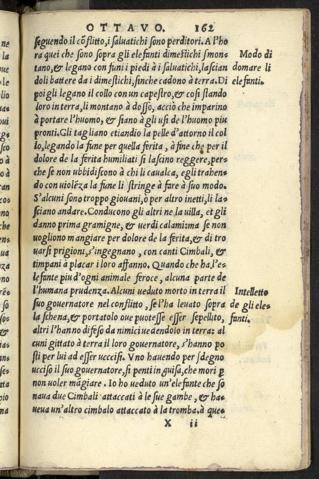 OTTAVO. 162
seguendo il cõflitto, i saluatichi sono perditori. A l'ho
ra quei che sono sopra gli elefanti dimestichi smon-
tano, & legano con funi i piedi à i saluatichi, lascian
doli battere da i dimestichi, finche cadono à terra. Di
poi gli legano il collo con un capestro, & cosi stando
loro in terra, li montano à dosso, acciò che imparino
à portare l'huomo, & siano à gli usi de l'huomo piu
pronti. Gli tagliano etiandio la pelle d'attorno il col
lo, legando la fune per quella ferita, à fine che per il
dolore de la ferita humiliati si lascino reggere, per o
che se non ubbidiscono à chi li caualca, egli trahen-
do con uiolẽza la fune li stringe à fare à suo modo.
S'alcuni sono troppo giouani, ò per altro inetti, li la-
sciano andare. Conducono gli altri ne la uilla, et gli
danno prima gramigne, & uerdi calami: ma se non
uogliono mangiare per dolore de la ferita, & di tro
uarsi prigioni, s'ingegnano, con canti Cimbali, &
timpani à placar i loro affanno. Quando che ha, l'e-
lefante piu d'ogni animale feroce, alcuna parte de
l'humana prudenza. Alcuni ueduto morto in terra il
suo gouernatore nel conflitto, se l'ha leuato sopra
la schena, & portatolo oue puotesse esser sepellito,
altri l'hanno difeso da nimici uedendolo in terra: al
cuni gittato à terra il loro gouernatore, s'hanno po
sti per lui ad esser uccisi. Vno hauendo per sdegno
ucciso il suo gouernatore, si penti in guisa, che mori p
non uoler mãgiare. Io ho ueduto un'elefante che so
naua due Cimbali attaccati à le sue gambe, & ha-
ueua un'altro cimbalo attaccato à la tromba. à que-
X ii
Modo di
domare li
elefanti.
Intelletto
de gli ele-
fanti.